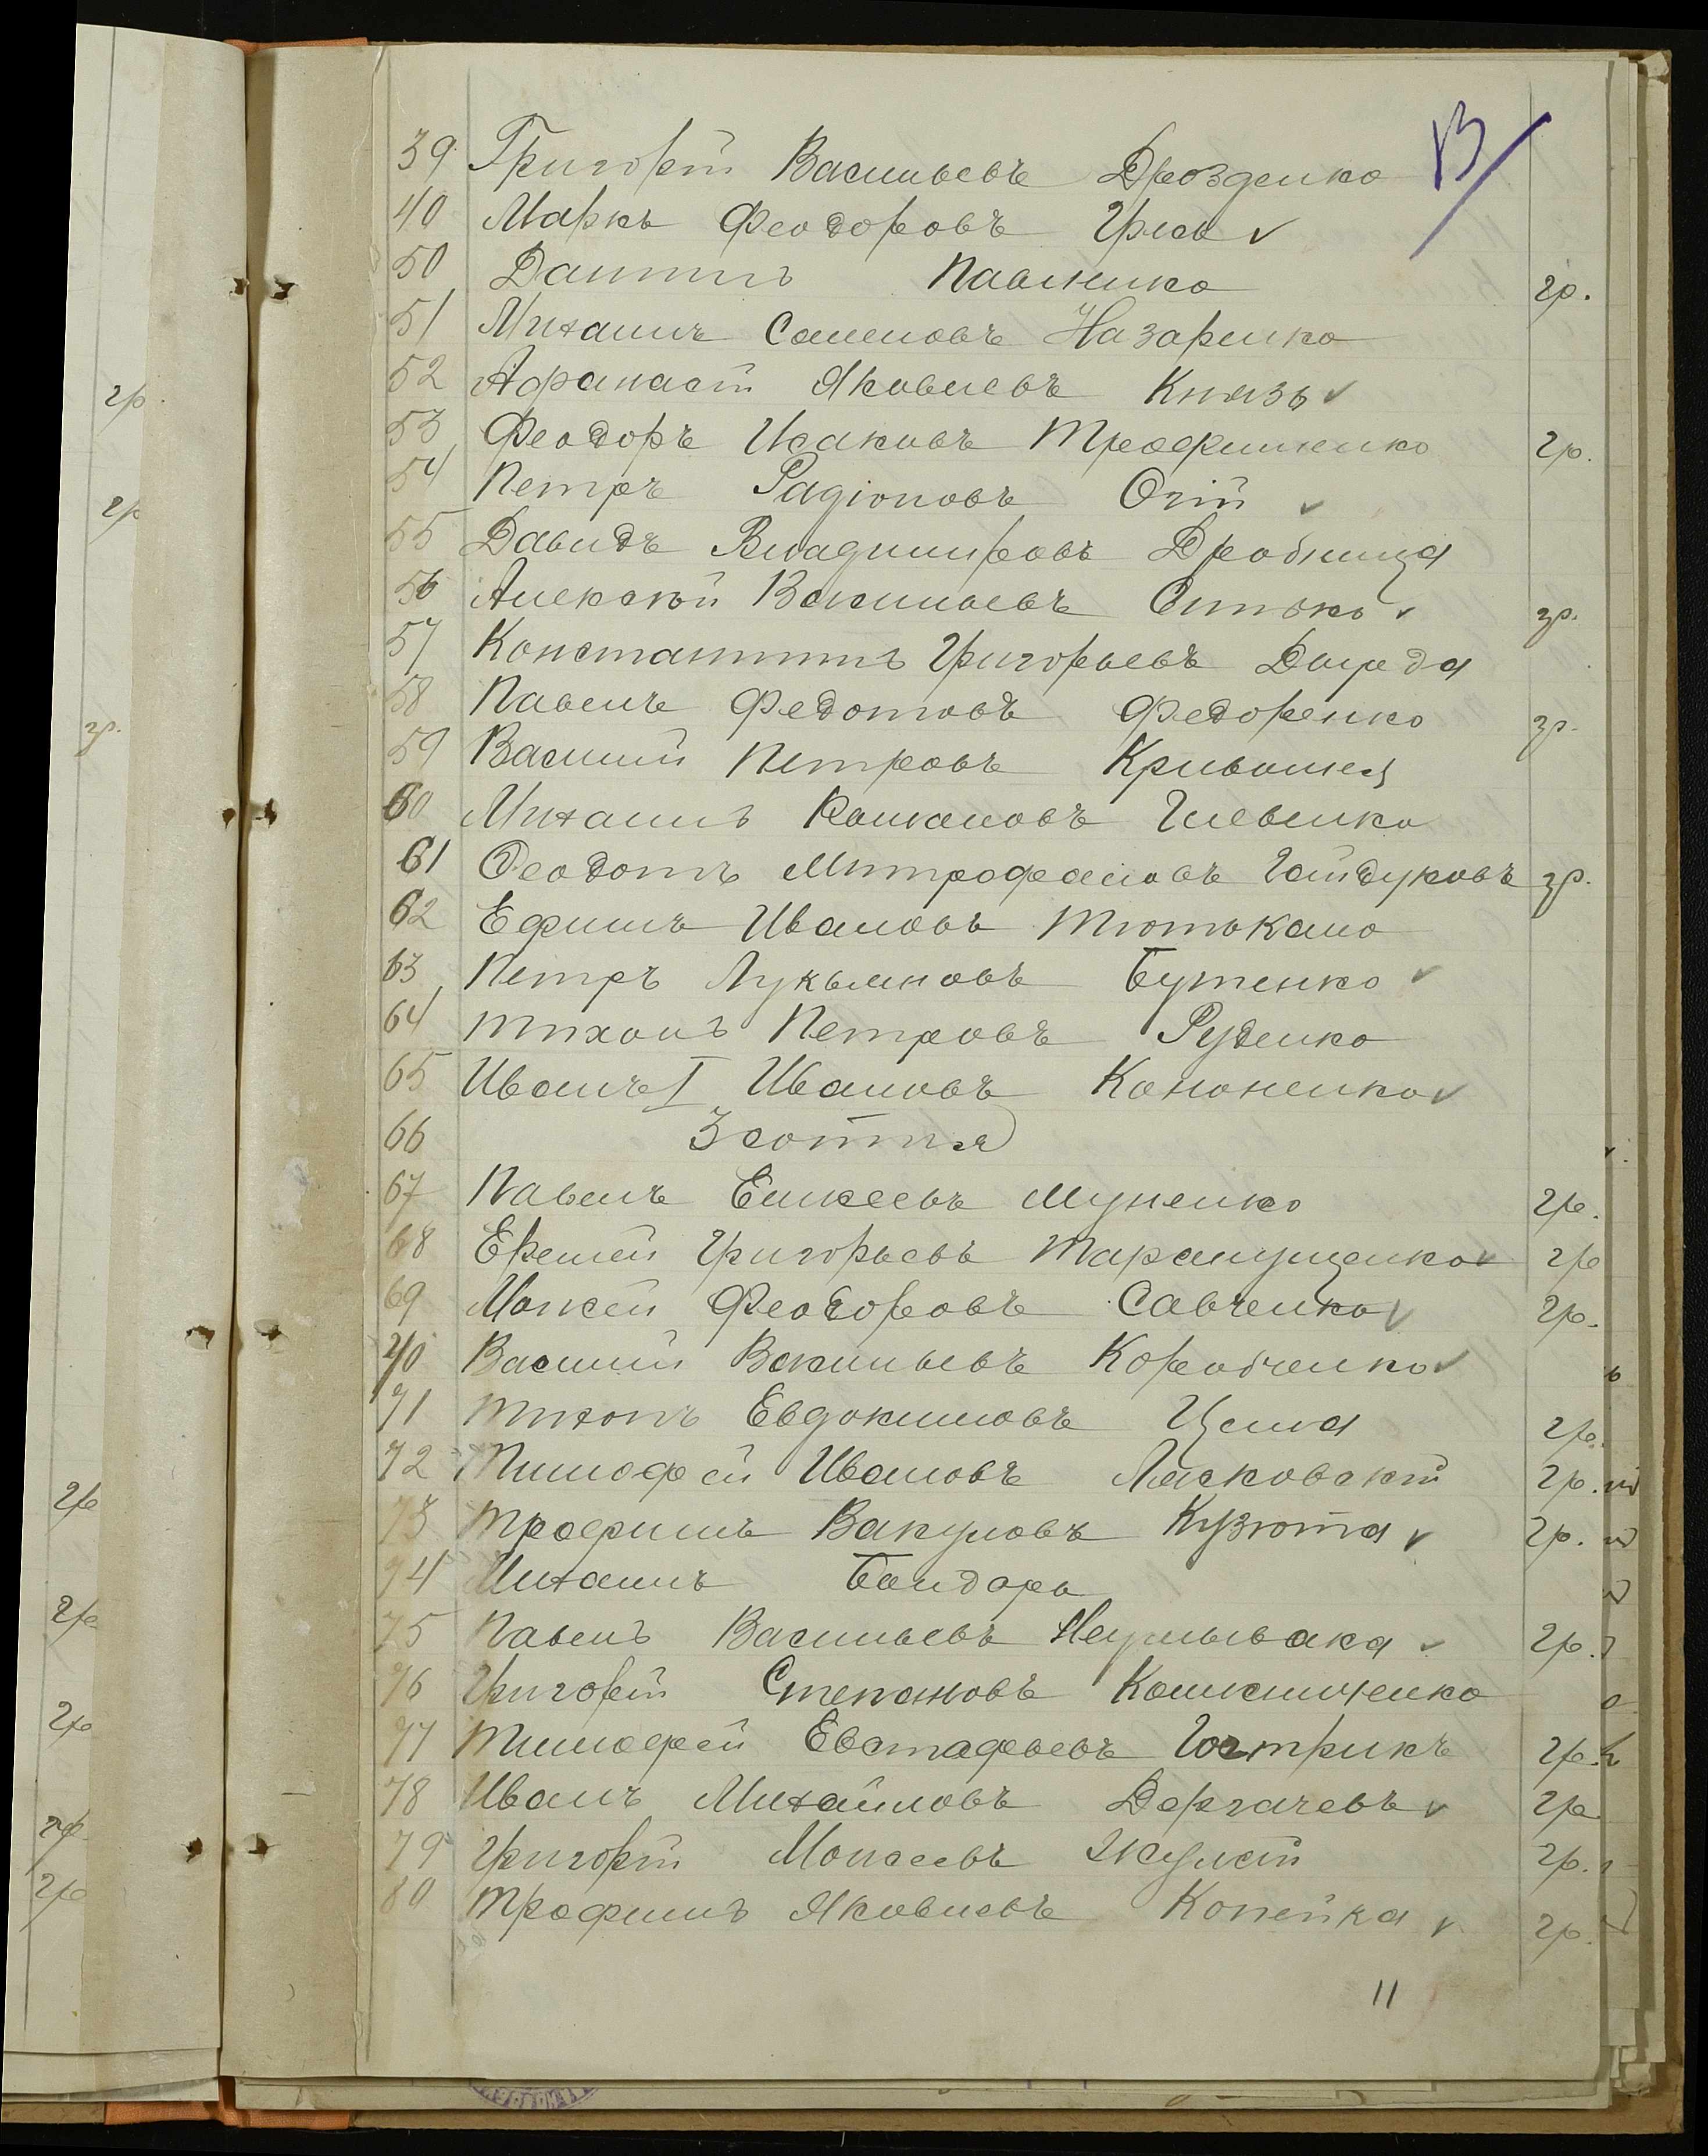 13
39 Григорій Васильевъ Дрозденко
40 Маркъ Феодоровъ Грись ✓
50 Даніилъ Павленко гр.
51 Михаилъ Семеновъ Назаренко
52 Афанасій Яковлевъ Князь ✓
53 Феодоръ Исаковъ Трофименко гр.
54 Петръ Радіоновъ Огій ✓
55 Давидъ Владимировъ Дробница
56 Алексѣй Васильевъ Ситько ✓ гр.
57 Константинъ Григорьевъ
58 Павелъ Федотовъ Федоренко гр.
59 Василий Петровъ Кривошея
60 Михаилъ Романовъ Глевенко
61 Феодотъ Митрофановъ Гайдуковъ гр.
62 Ефимъ Ивановъ
63 Петръ Лукьяновъ Бутенко ✓
64 Тихонъ Петровъ Руденко
65 Иванъ I Ивановъ Кононенко ✓
66 3 сотня
67 Павелъ Елисеевъ гр.
68 Еремей Григорьевъ Таранущенко ✓ гр
69 Моисей Феодоровъ Савченко ✓ гр.
70 Василий Васильевъ Коробченко ✓
71 Тихонъ Евдокимовъ гр.
72 Тимофей Ивановъ Лясковскій гр.
73 Трофимъ Вакуловъ Кузюта ✓ гр.
74 Михаилъ Бондарь
75 Павелъ Васильевъ Неумывака ✓ гр.
76 Григорій Степановъ Колисниченко
77 Тимофей Евстафьевъ Гострикъ гр.
78 Иванъ Михайловъ Дергачевъ ✓ гр
79 Григорій Моисеевъ гр.
80 Трофимъ Яковлевъ Копейка ✓ гр.
11